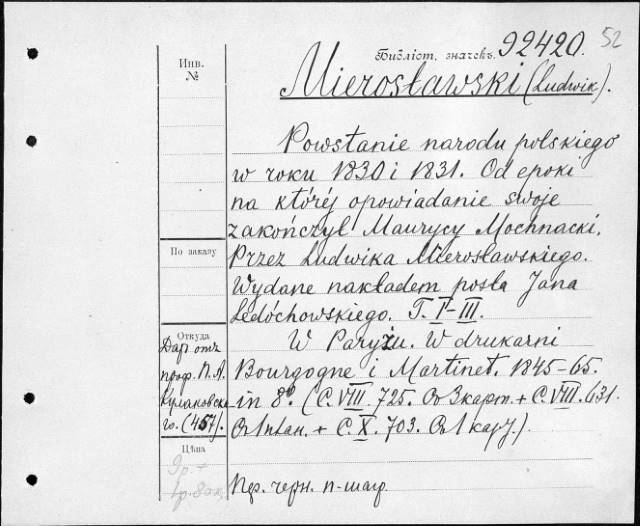 52
Библіот. значекъ. 92420.
Инв.
№
Mierosławski (Ludwik).
Powstanie narodu polskiego
w roku 1830 i 1831. Od epoki
na którėj opowiadanie swoje
zakończył Maurycy Mochnacki,
Przez Ludwika Mierosławskiego.
По заказу
Wydane nakładem posła Jana
Ledóchowskiego. T. I–III.
Откуда
W Paryżu. W drukarni
Даръ отъ
Bourgogne i Martinet. 1845–65.
проф. П. А.
in 8º. (C. VIII. 725. Съ 3 карт. + C. VIII. 631.
го. (457).
Съ 1 план. + C. X. 703. Съ 1 кар.).
Цѣна
Пер. черн. п-шагр